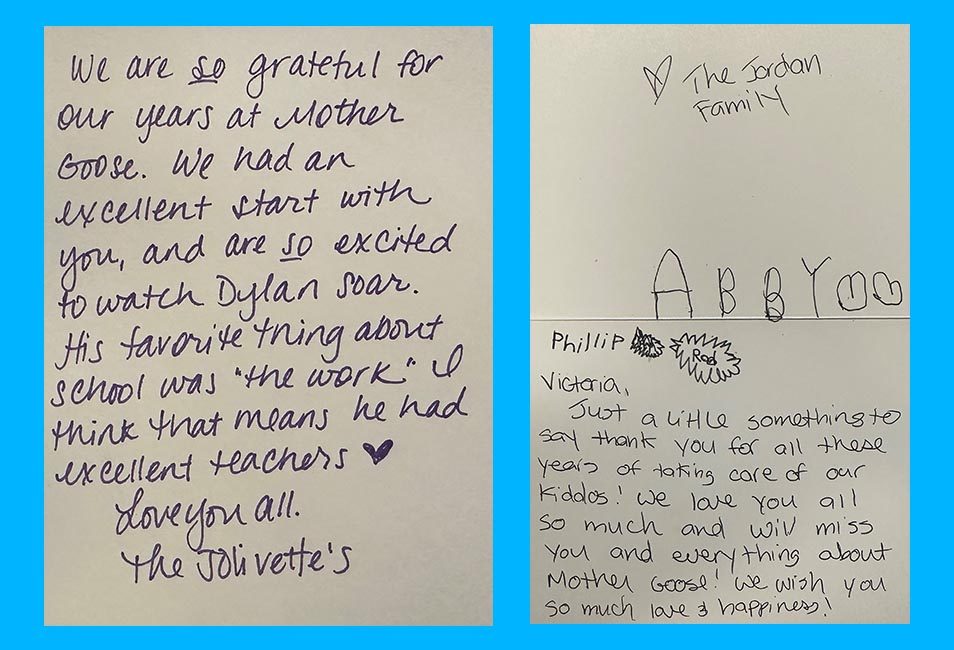 We are so grateful for
our years at Mother
Goose. We had an
excellent start with
you, and are so excited
to watch Dylan soar.
His favorite thing about
school was "the work" I
think that means he had
excellent teachers ♥
Love you all.
The Jolivette's
♡ The Jordan
Family
ABBY
Phillip
Victoria,
Just a little something to
say thank you for all these
years of taking care of our
kiddos! We love you all
so much and will miss
you and everything about
Mother Goose! We wish you
so much love & happiness!